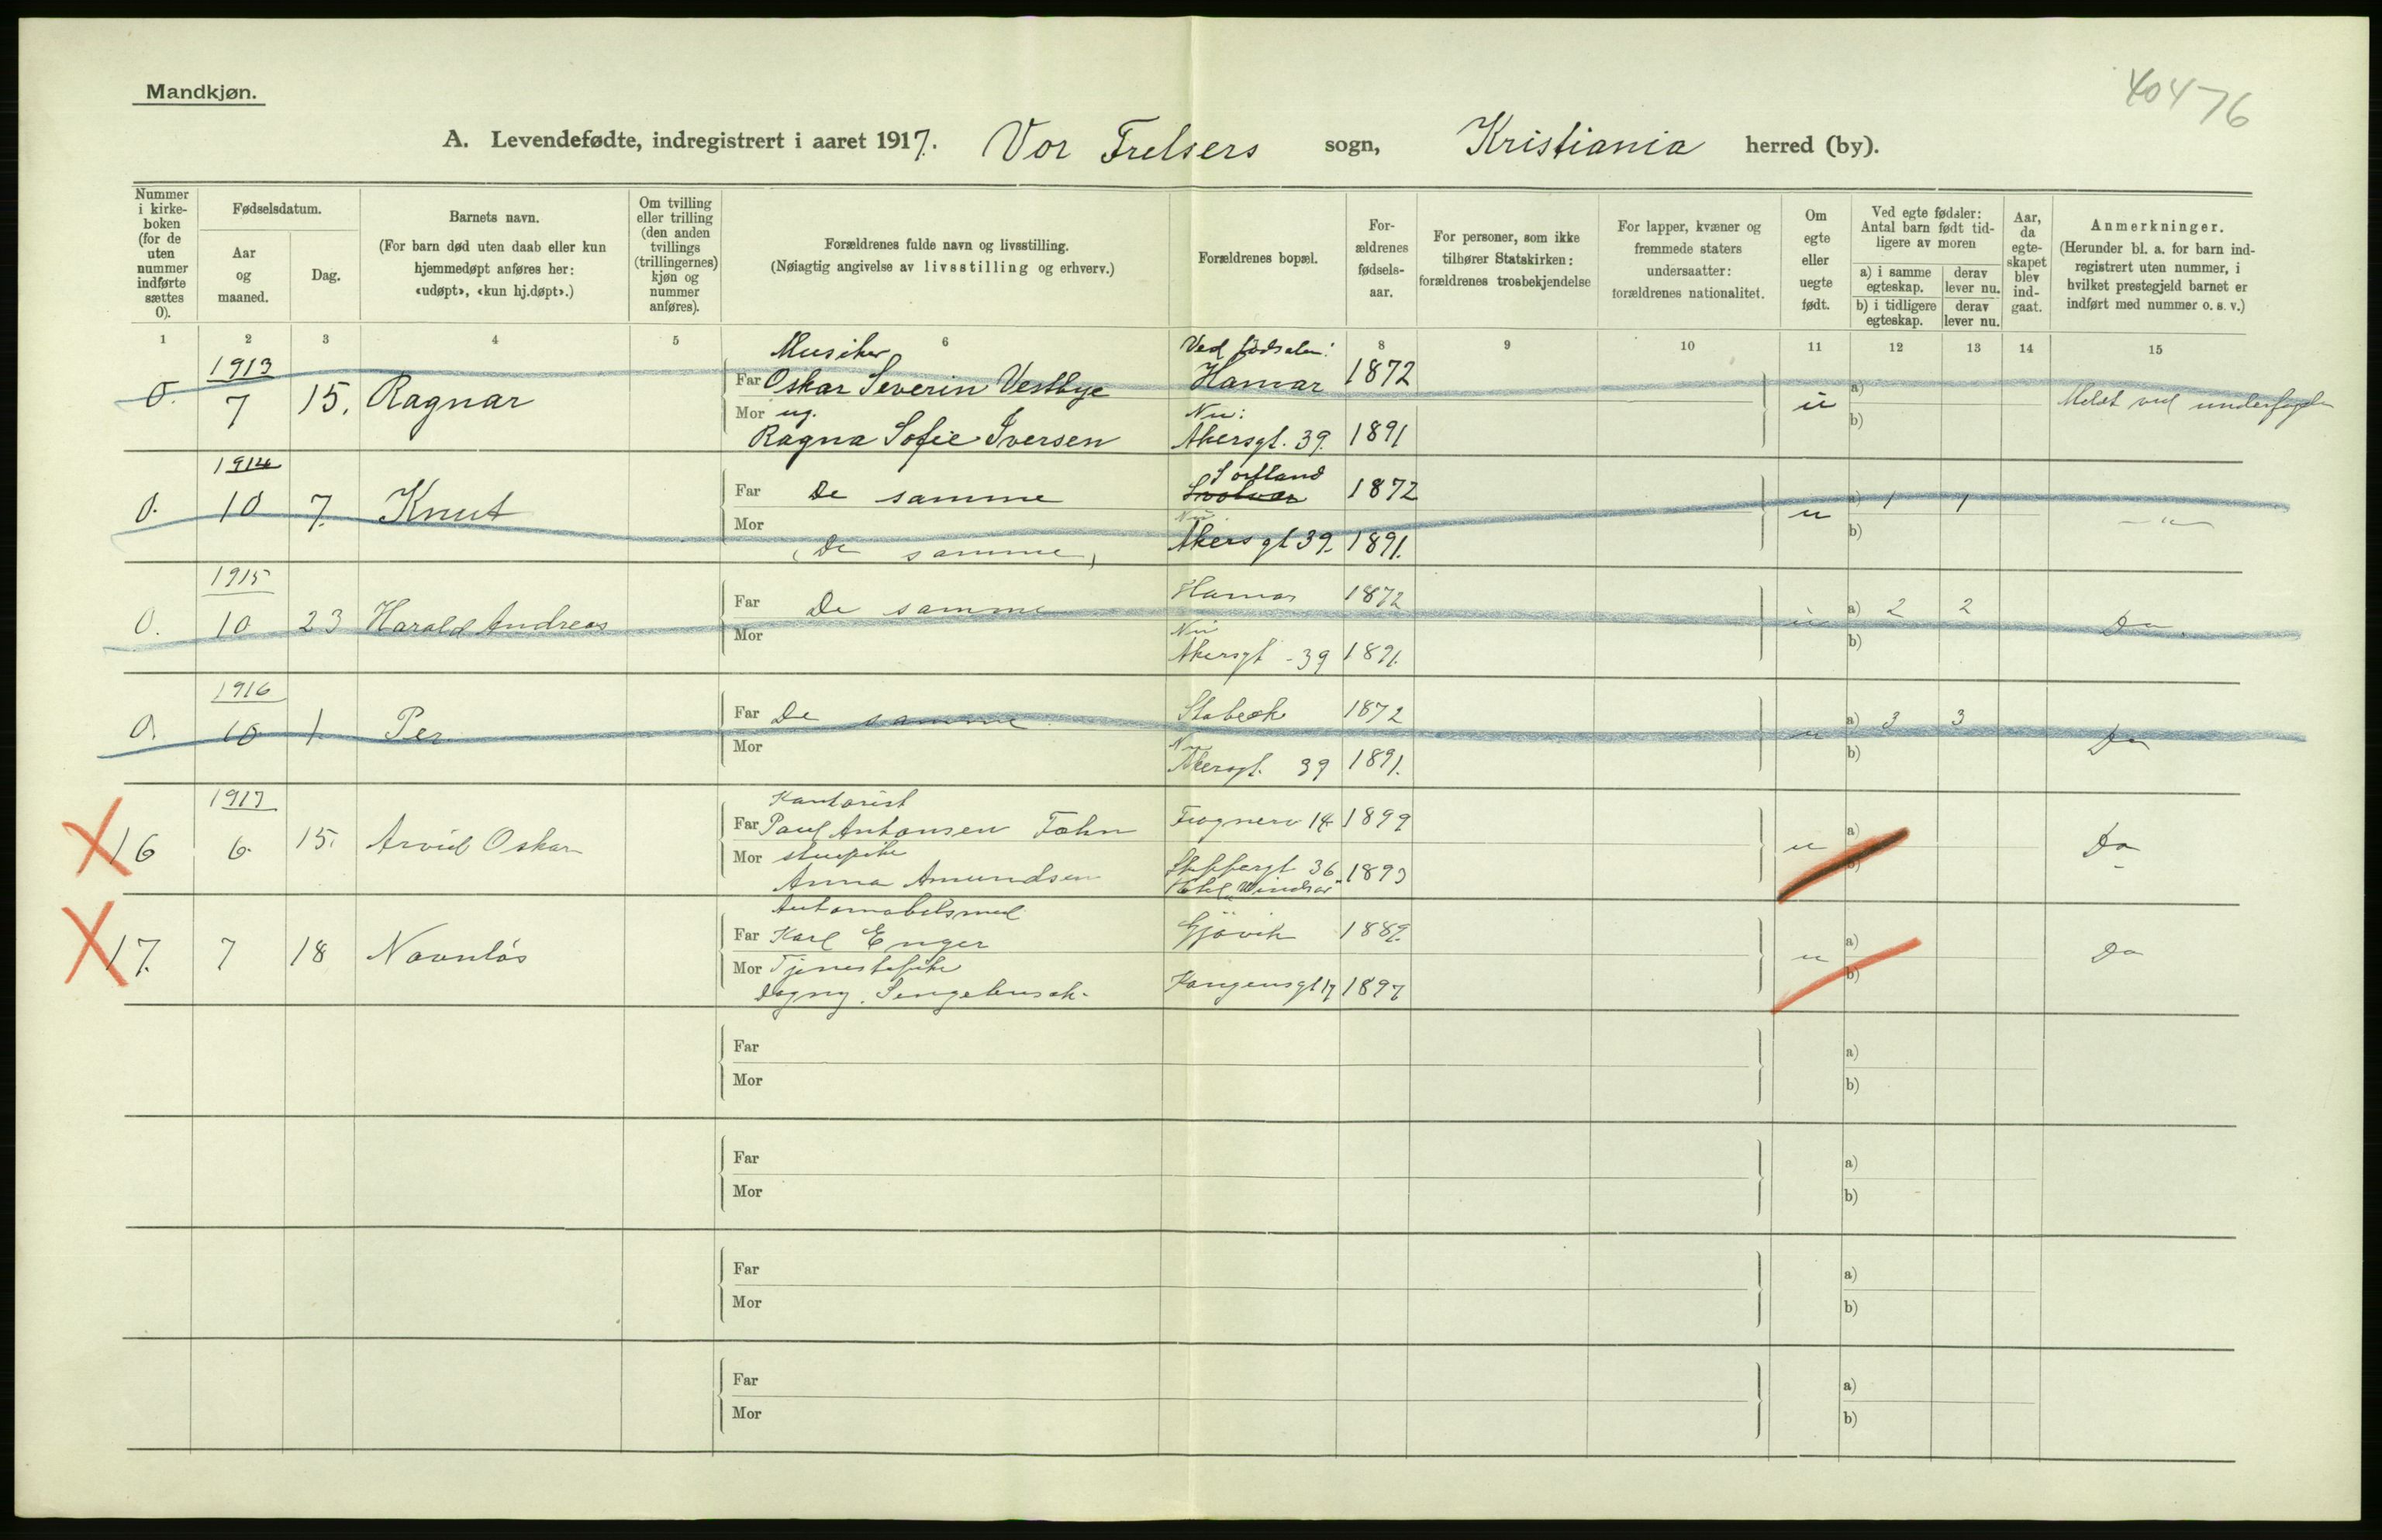 Mandkjøn.
40476
A. Levendefødte, indregistrert i aaret 1917. Vor Frelsers sogn, Kristiania herred (by).
Nummer i kirke-boken (for de uten nummer indførte sættes 0).
Fødselsdatum.
Aar og maaned.
Dag.
Barnets navn.
(For barn død uten daab eller kun hjemmedøpt anføres her: «udøpt», «kun hj.døpt».)
Om tvilling eller trilling (den anden tvillings (trillingernes) kjøn og nummer anføres).
Forældrenes fulde navn og livsstilling.
(Nøiagtig angivelse av livsstilling og erhverv.)
Forældrenes bopæl.
For-ældrenes fødsels-aar.
For personer, som ikke tilhører Statskirken: forældrenes trosbekjendelse
For lapper, kvæner og fremmede staters undersaatter: forældrenes nationalitet.
Om egte eller uegte født.
Ved egte fødsler: Antal barn født tid-ligere av moren
a) i samme egteskap.
derav lever nu.
b) i tidligere egteskap.
derav lever nu.
Aar, da egte-skapet blev ind-gaat.
Anmerkninger.
(Herunder bl. a. for barn ind-registrert uten nummer, i hvilket prestegjeld barnet er indført med nummer o. s. v.)
1 2 3 4 5 6 8 9 10 11 12 13 14 15
1913
0. 7 15. Ragnar
Musiker
Far Oskar Severin Vestbye
Mor ug.
Ragna Sofie Iversen
Ved fødselen:
Hamar 1872
Nu:
Akersgt. 39. 1891
u
a)
b)
Meldt ved
1914
0. 10 7. Knut
Far De samme
Mor
(De samme)
Sortland
Svolvær 1872
Nu
Akersgt 39. 1891.
u
a) 1 1
b)
— " —
1915
0. 10 23 Harald Andreas
Far De samme
Mor
Hamar 1872
Nu
Akersgt - 39 1891.
u
a) 2 2
b)
Do.
1916
0. 10 1. Per
Far De samme
Mor
Stabæk 1872
Nu
Akersgt. 39 1891.
u
a) 3 3
b)
Do
1917
16 6. 15. Arvid Oskar
Kontorist
Far Paul Antonsen
Mor stuepike
Anna Amundsen
Frognerv 14 1899
36 1893
Hotel "Windsor"
u
a)
b)
Do
17. 7 18 Navnløs
Far Karl Enger
Mor Tjenestepike
Dagny
Gjøvik 1889.
Kongensgt 17 1897
u
a)
b)
Do
Far
Mor
a)
b)
Far
Mor
a)
b)
Far
Mor
a)
b)
Far
Mor
a)
b)